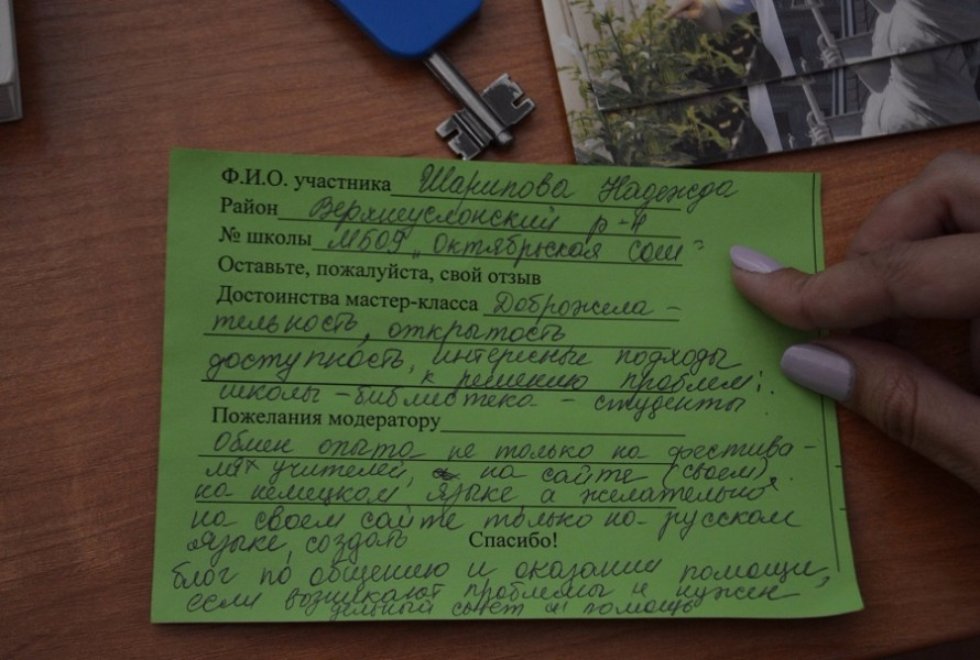 Ф.И.О. участника Шарипова Надежда
Район Верхнеуслонский р-н
№ школы МБОУ "Октябрьская сош"
Оставьте, пожалуйста, свой отзыв
Достоинства мастер-класса Доброжела-
тельность, открытость
доступность, интересные подходы
к решению проблем:
школы - библиотека - студенты
Пожелания модератору
Обмен опыта не только на фестива-
лях учителей, на сайте (своем),
на немецком языке а желательно
на своем сайте только на русском
языке, создать Спасибо!
блог по общению и оказании помощи,
если возникают проблемы и нужен
дельный совет и помощь